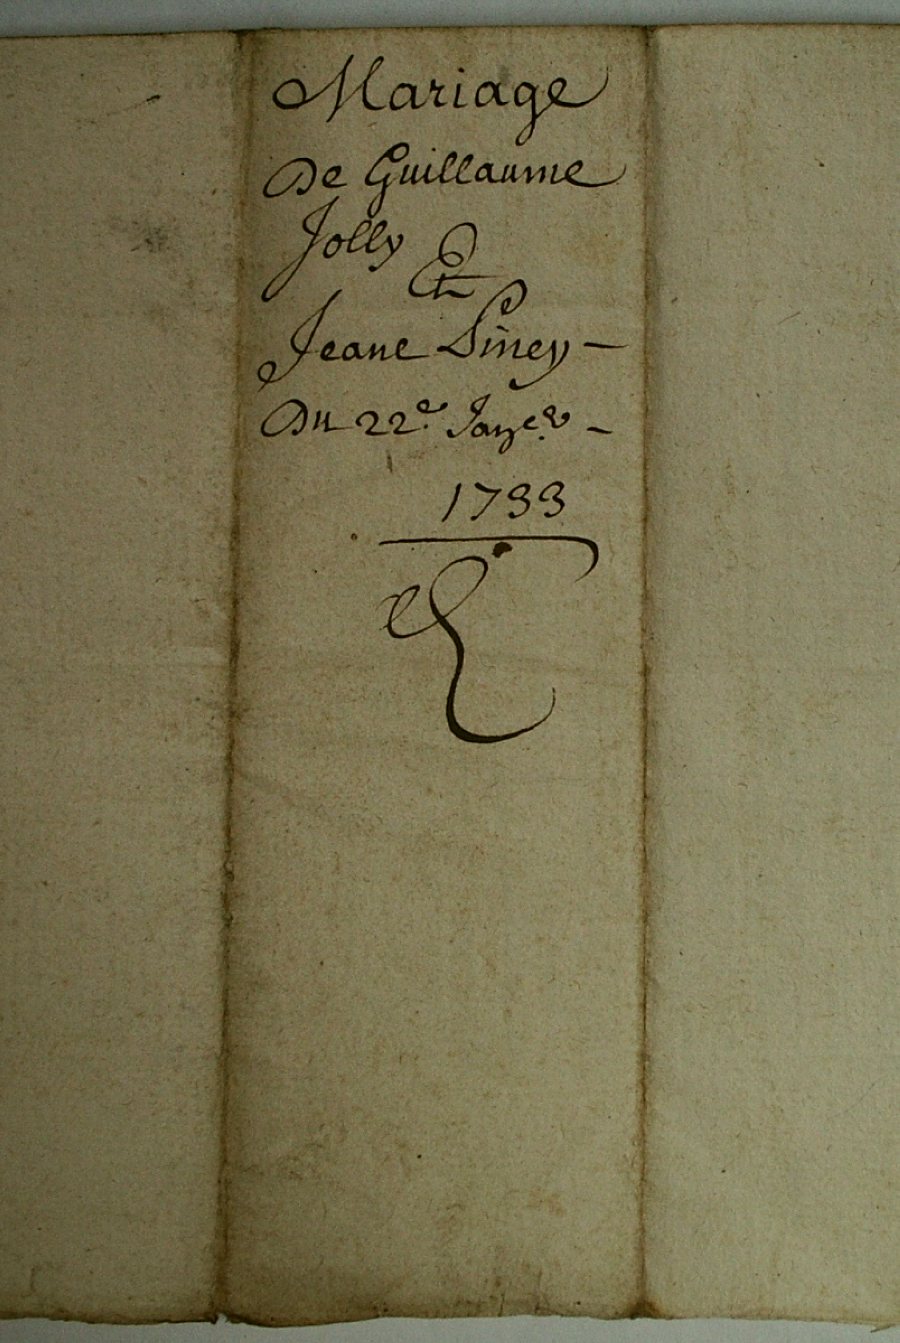 Mariage
De Guillaume
Jolly Et
Jeane Piney –
Du 22e. Janer. –
1733